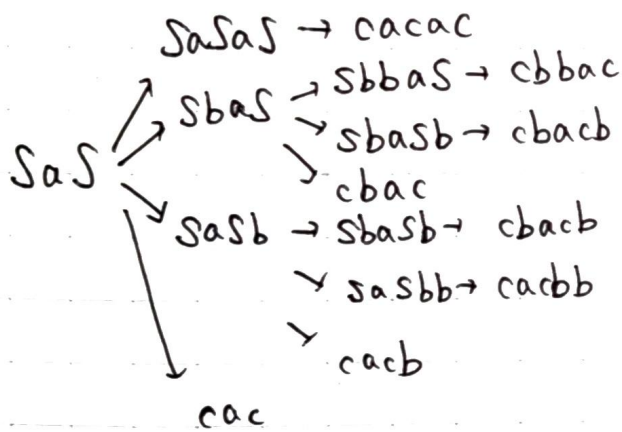 SaSaS → cacac
SbaS → SbbaS → cbbac
→ SbaSb → cbacb
SaS
→ cbac
SaSb → SbaSb → cbacb
→ SaSbb → cacbb
→ cacb
cac